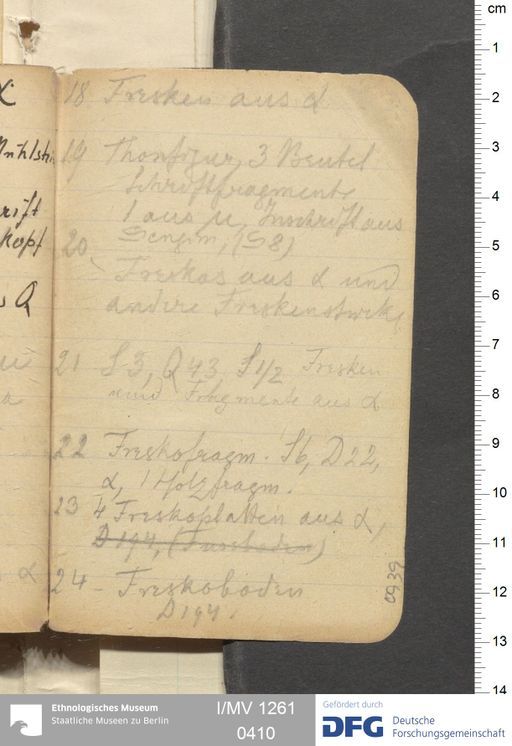 α
18 Fresken aus α
Mühlst
19 Thonfigur, 3 Beutel
Schriftfragmente
rift
1 aus μ, Inschrift aus
kopf
20 Sengim, (S8)
Freskos aus α und
andere Freskenstücke
s Q
21 S 3, Q 43 S 1/2 Fresken
und Fragmente aus α
22 Freskofragm. S6, D 22,
α, 1 Holzfragm.
23 4 Freskoplatten aus α,
D 194, (Fussboden)
α
24 - Freskoboden
D 194.
0939
cm
1
2
3
4
5
6
7
8
9
10
11
12
13
14
Ethnologisches Museum
Staatliche Museen zu Berlin
I/MV 1261
0410
Gefördert durch
DFG Deutsche
Forschungsgemeinschaft